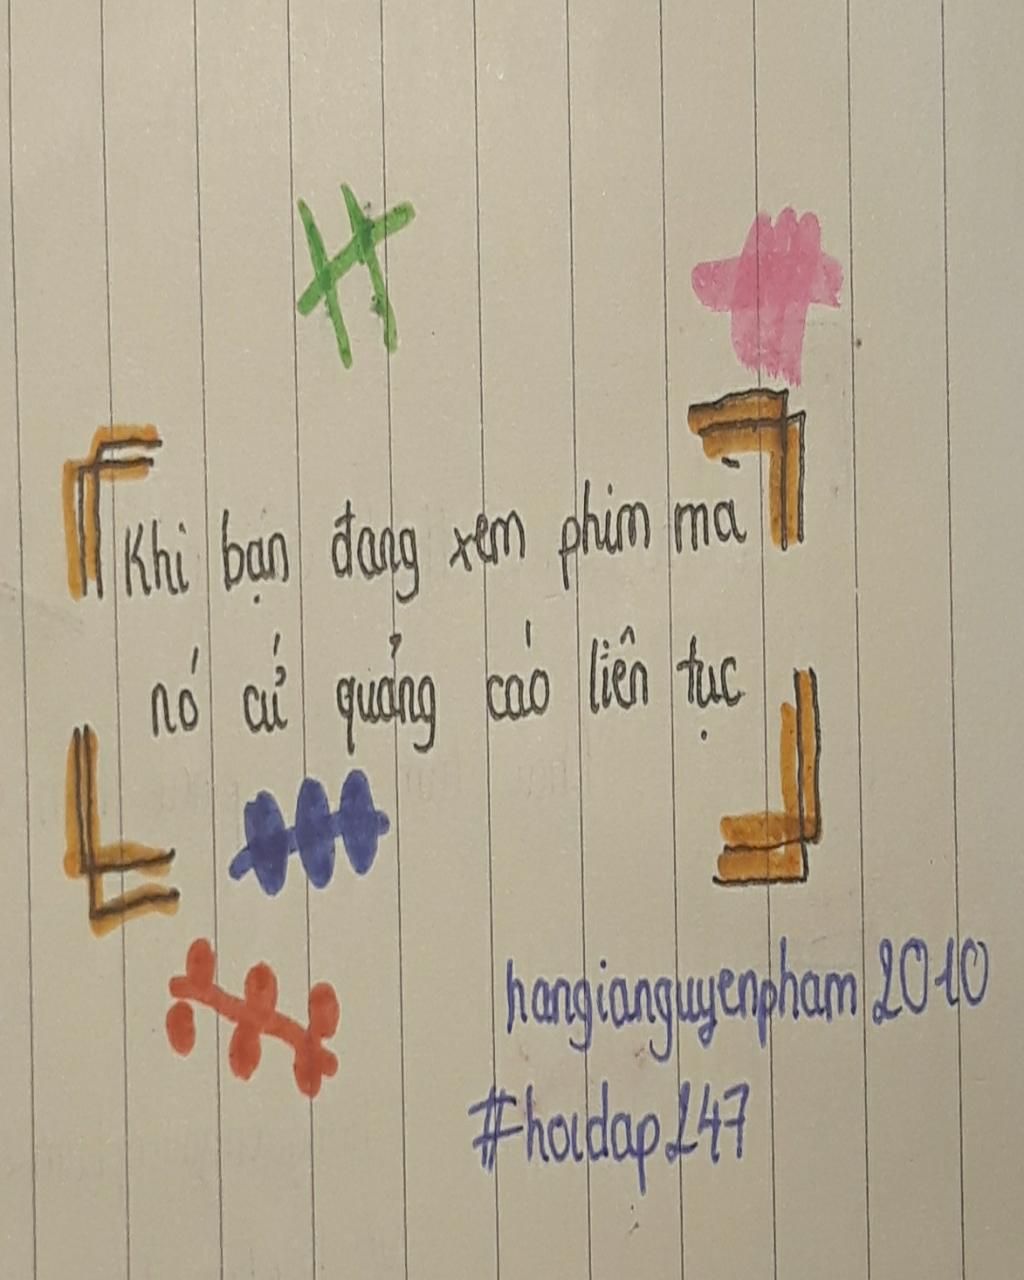 Khi bạn đang xem phim mà
nó cứ quảng cáo liên tục
hangianguyenpham2010
#hoidap247